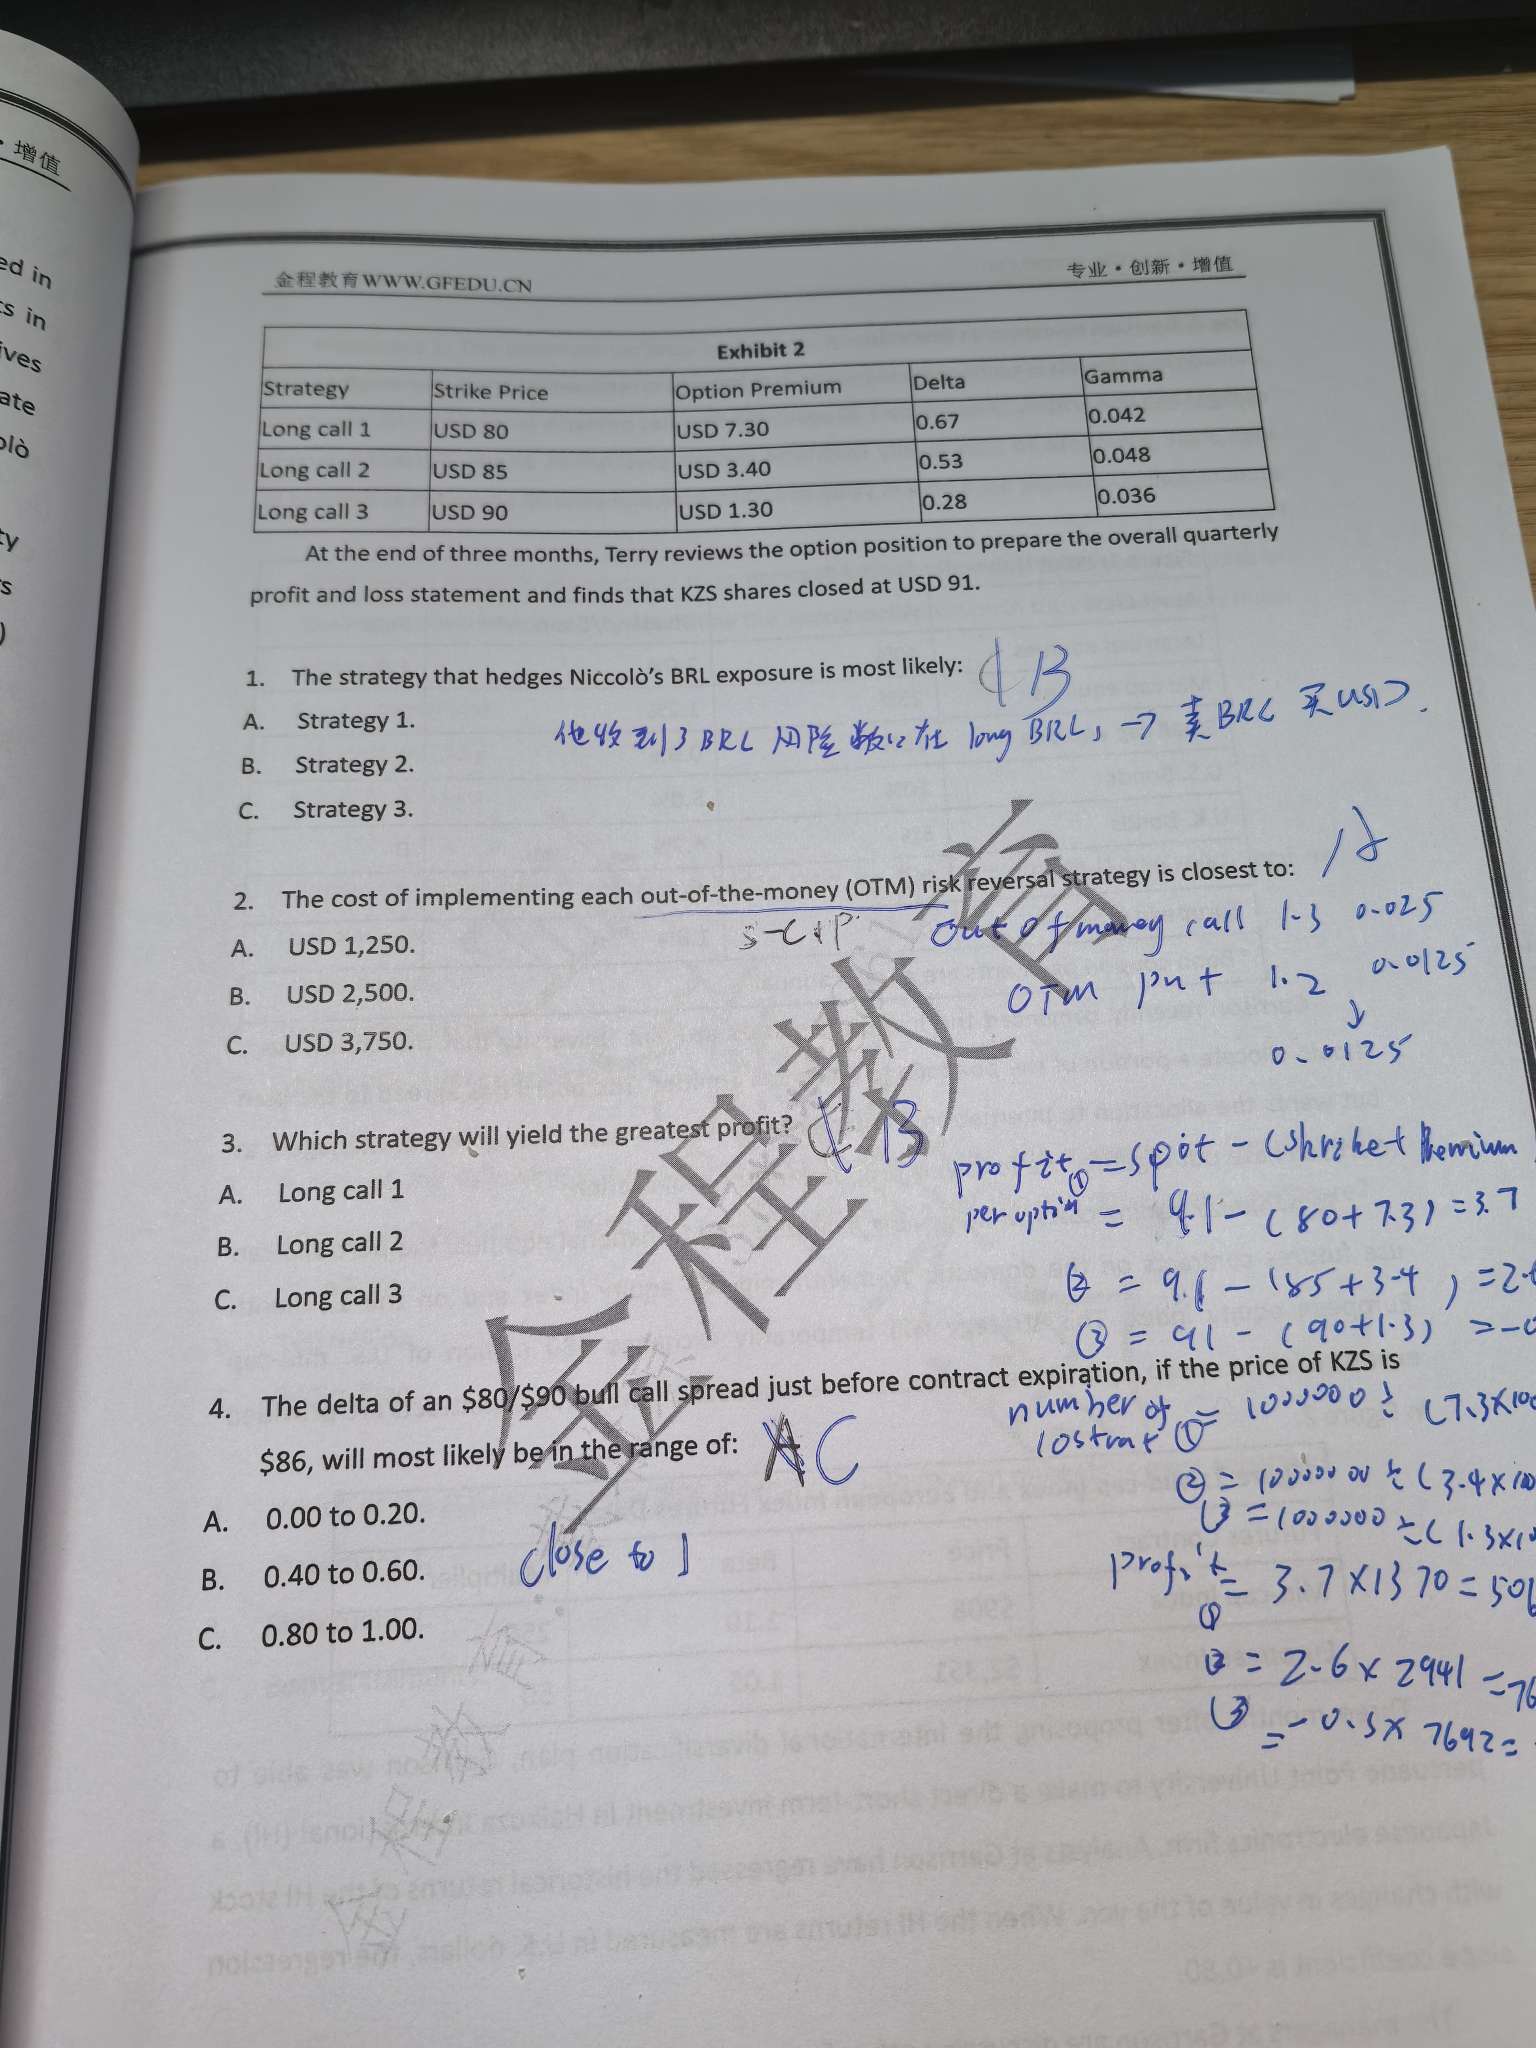 · 增值
ed in
ts in
ives
ate
olò
ty
s
)
金程教育WWW.GFEDU.CN 专业·创新·增值
Exhibit 2
Strategy Strike Price Option Premium Delta Gamma
Long call 1 USD 80 USD 7.30 0.67 0.042
Long call 2 USD 85 USD 3.40 0.53 0.048
Long call 3 USD 90 USD 1.30 0.28 0.036
At the end of three months, Terry reviews the option position to prepare the overall quarterly
profit and loss statement and finds that KZS shares closed at USD 91.
1. The strategy that hedges Niccolò's BRL exposure is most likely: B
A. Strategy 1.
他收到了BRL 风险敞口在 long BRL, → 卖BRL 买USD.
B. Strategy 2.
C. Strategy 3.
2. The cost of implementing each out-of-the-money (OTM) risk reversal strategy is closest to: A
S-C+P
A. USD 1,250.
out of money call 1.3 0.025
B. USD 2,500.
OTM put 1.2 0.0125
C. USD 3,750.
↓
0.0125
3. Which strategy will yield the greatest profit? B
profit① = spot - (strike + Premium
per option
A. Long call 1
= 91 - (80+7.3) = 3.7
B. Long call 2
② = 91 - (85+3.4) = 2.
C. Long call 3
③ = 91 - (90+1.3) = -0
4. The delta of an $80/$90 bull call spread just before contract expiration, if the price of KZS is
number of ① = 1000000 ÷ (7.3×100
$86, will most likely be in the range of: C
② = 1000000 ÷ (3.4×100
A. 0.00 to 0.20.
③ = 1000000 ÷ (1.3×10
B. 0.40 to 0.60.
close to 1
profit ① = 3.7×1370 = 506
C. 0.80 to 1.00.
② = 2.6×2941 = 76
③ = -0.3×7692 =
金程教育